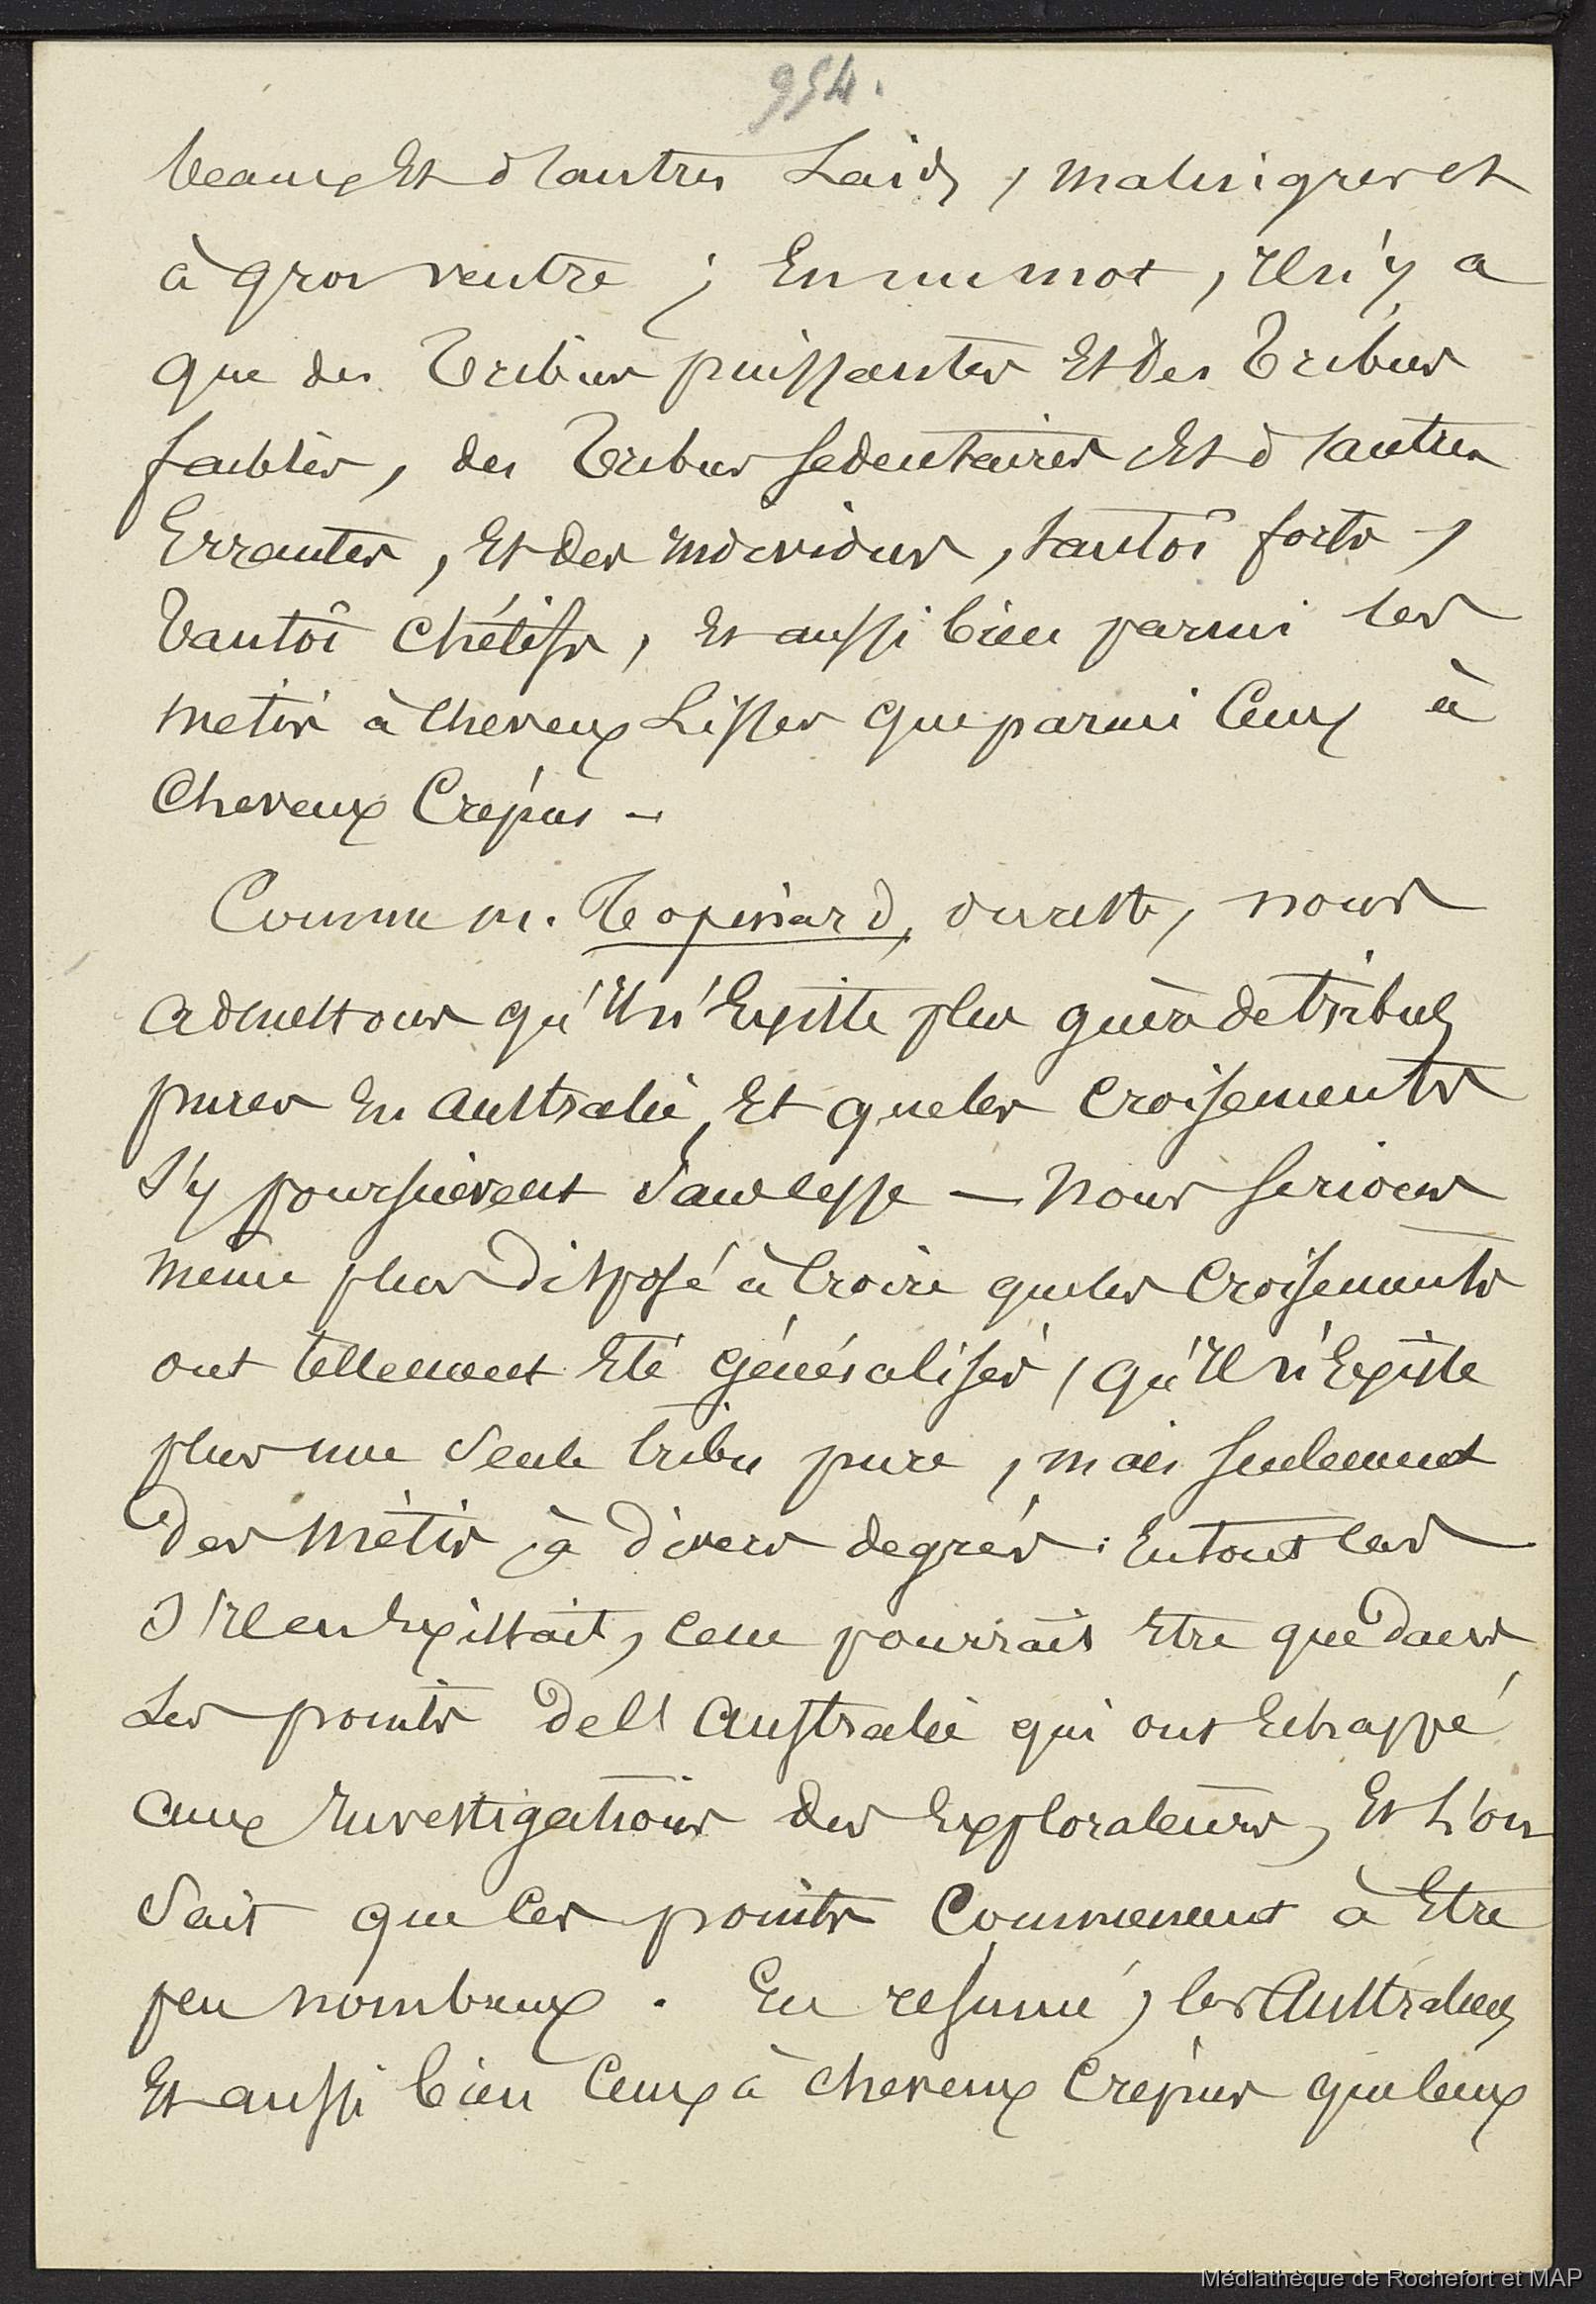 954.
beaux Et d'autres Laids, malingres et
à gros ventre ; En un mot, Il n'y a
que des Tribus puissantes Et des Tribus
faibles, des Tribus sedentaires Et d'autres
Errantes, Et des individus, tantôt forts,
Tantôt chétifs, Et aussi bien parmi les
metis à cheveux Lisses que parmi Ceux à
Cheveux Crépus -
Comme m. Topinard, du reste, nous
admettons qu'Il n'Existe plus guère de tribus
pures En australie, Et que les croisements
s'y poursuivent sans cesse — Nous serions
même plus disposé à Croire que les Croisements
ont tellement Eté généralisés, qu'Il n'Existe
plus une seule tribu pure, mais seulement
des métis à divers degrés. En tout cas
s'Il en Existait, ce ne pourrait Etre que dans
Les points de l'Australie qui ont Echappé
aux Investigations des Explorateurs, Et L'on
sait que ces points Commencent à Etre
peu nombreux. En resumé, les Australiens
Et aussi bien Ceux à cheveux Crépus que Ceux
Médiathèque de Rochefort et MAP